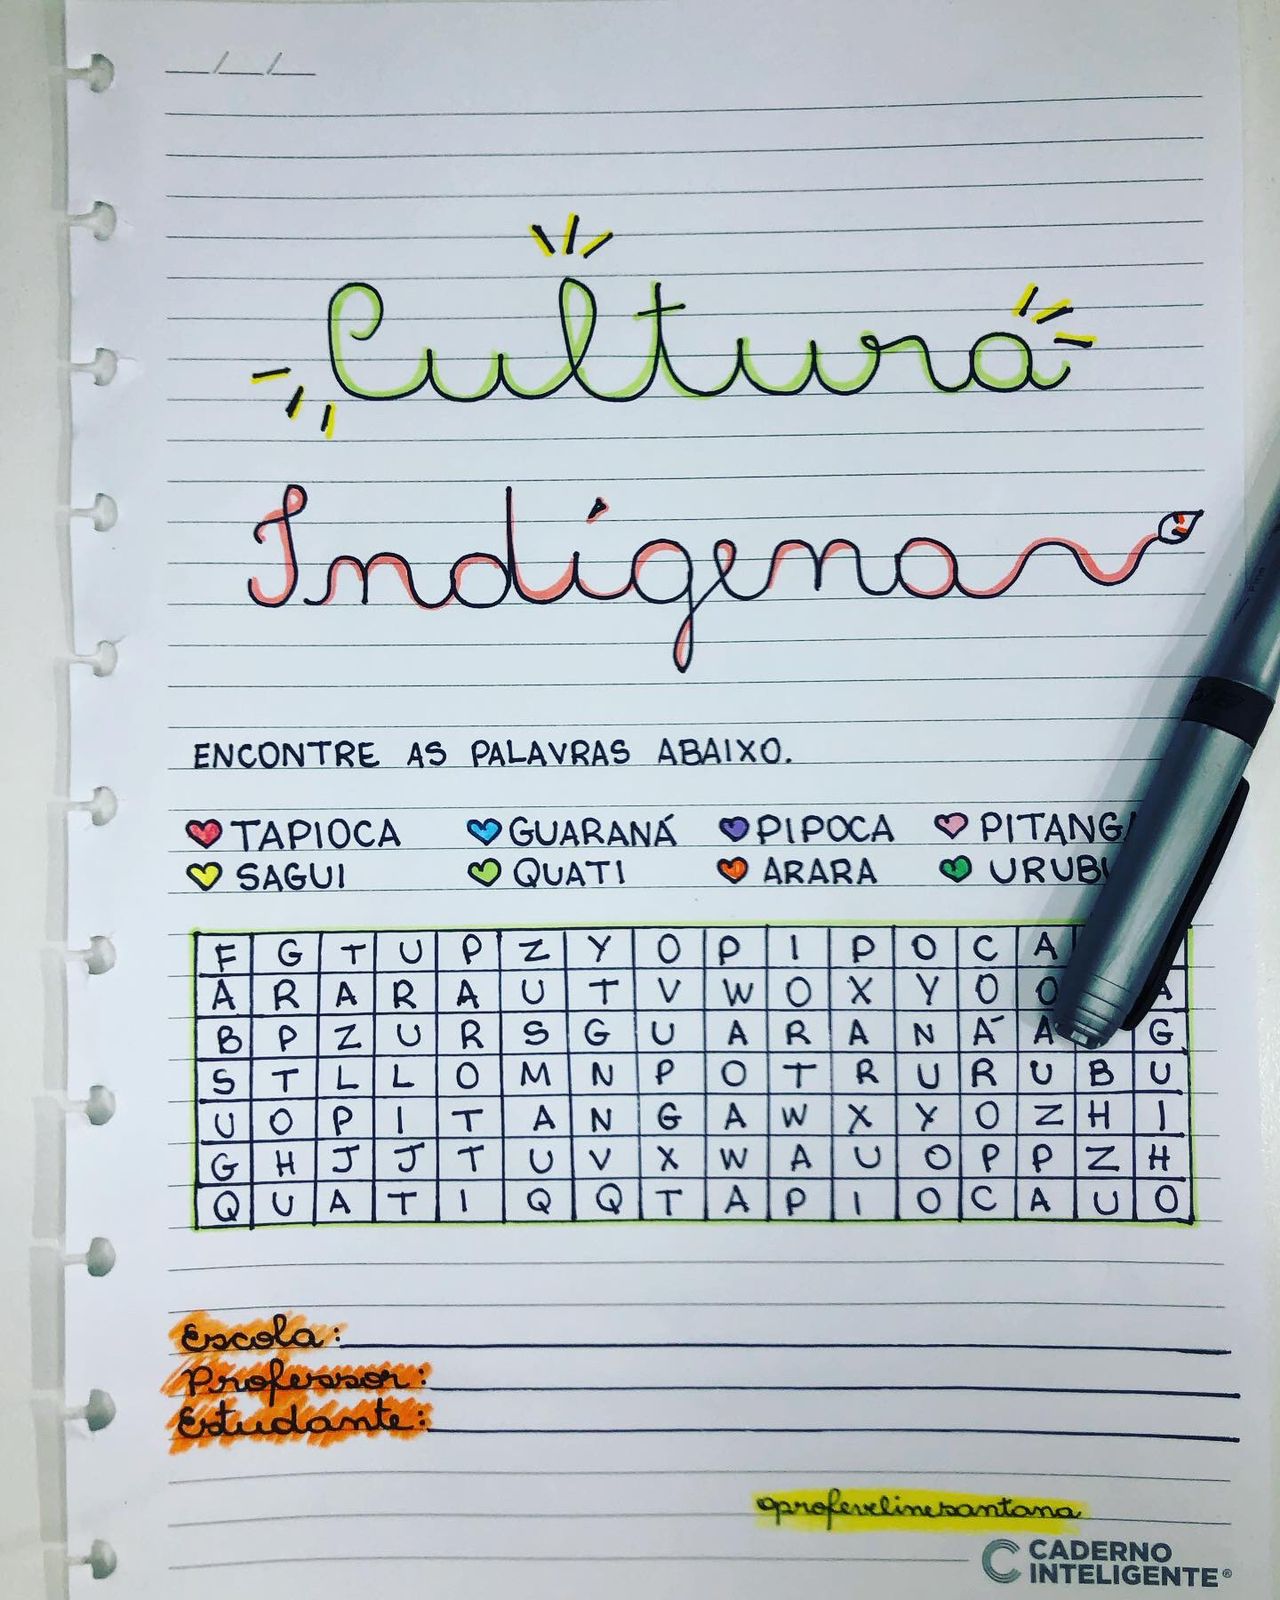 __/__/__
Cultura
Indígena
ENCONTRE AS PALAVRAS ABAIXO.
TAPIOCA GUARANÁ PIPOCA PITANG
SAGUI QUATI ARARA URUB
F G T U P Z Y O P I P O C A
A R A R A U T V W O X Y O O A
B P Z U R S G U A R A N Á A G
S T L L O M N P O T R U R U B U
U O P I T A N G A W X X O Z H I
G H J J T U V X W A U O P P Z H
Q U A T I Q Q T A P I O C A U O
Escola:
Professor:
Estudante:
@profevelinesantana
CADERNO
INTELIGENTE®